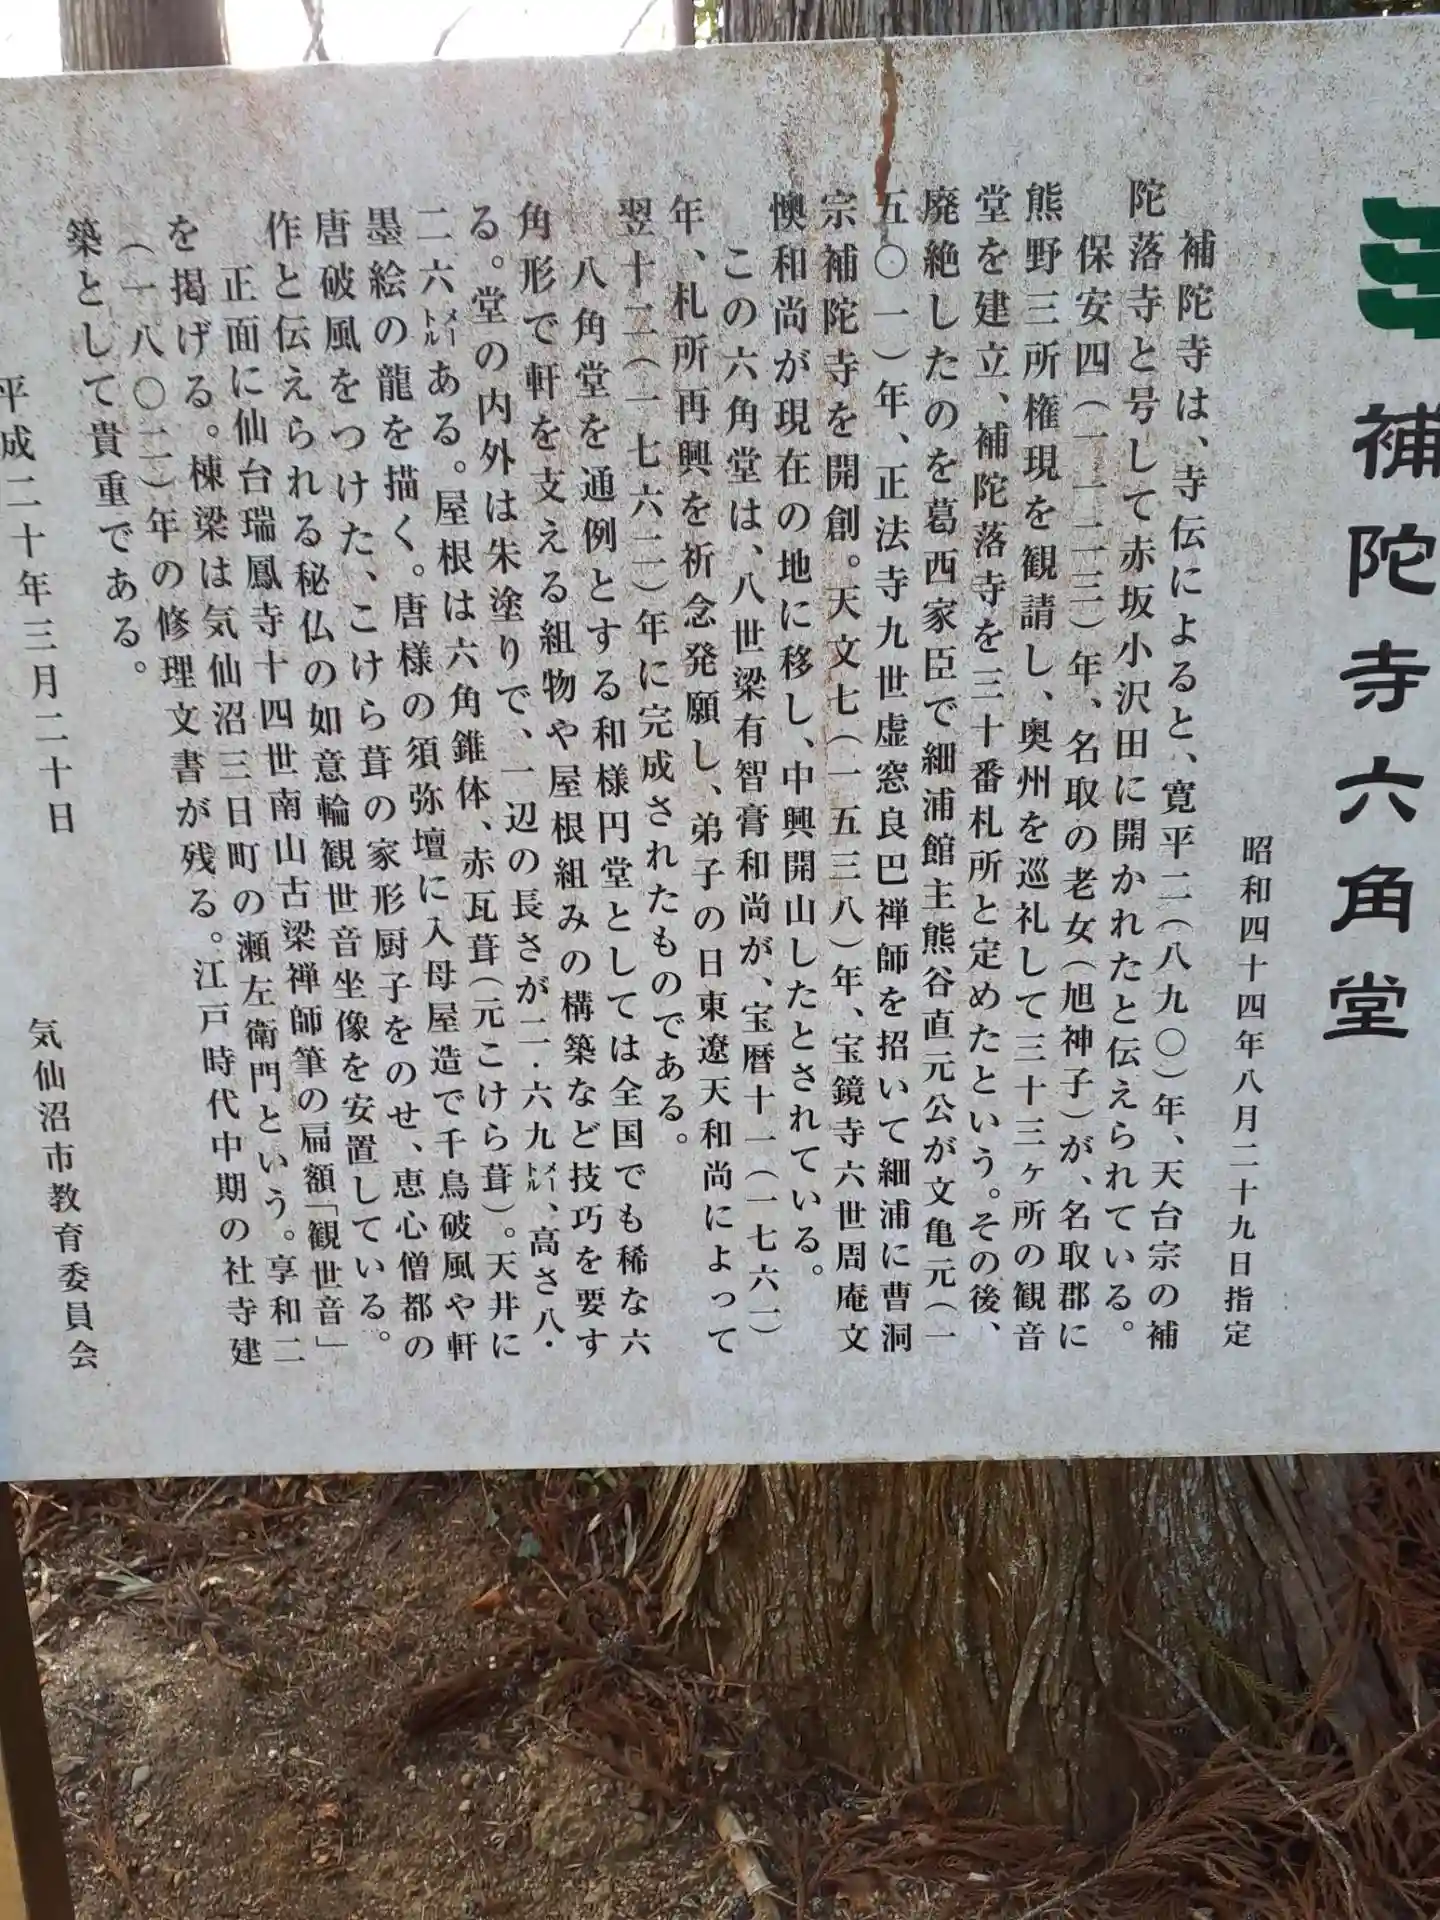 補陀寺六角堂
昭和四十四年八月二十九日指定
補陀寺は、寺伝によると、寛平二(八九〇)年、天台宗の補
陀落寺と号して赤坂小沢田に開かれたと伝えられている。
保安四(一一二三)年、名取の老女(旭神子)が、名取郡に
熊野三所権現を観請し、奥州を巡礼して三十三ヶ所の観音
堂を建立、補陀落寺を三十番札所と定めたという。その後、
廃絶したのを葛西家臣で細浦館主熊谷直元公が文亀元(一
五〇一)年、正法寺九世虚窓良巴禅師を招いて細浦に曹洞
宗補陀寺を開創。天文七(一五三八)年、宝鏡寺六世周庵文
懊和尚が現在の地に移し、中興開山したとされている。
この六角堂は、八世梁有智膏和尚が、宝暦十一(一七六一)
年、札所再興を祈念発願し、弟子の日東遼天和尚によって
翌十二(一七六二)年に完成されたものである。
八角堂を通例とする和様円堂としては全国でも稀な六
角形で軒を支える組物や屋根組みの構築など技巧を要す
る。堂の内外は朱塗りで、一辺の長さが二・六九メートル、高さ八・
二六メートルある。屋根は六角錐体、赤瓦葺(元こけら葺)。天井に
墨絵の龍を描く。唐様の須弥壇に入母屋造で千鳥破風や軒
唐破風をつけた、こけら葺の家形厨子をのせ、恵心僧都の
作と伝えられる秘仏の如意輪観世音坐像を安置している。
正面に仙台瑞鳳寺十四世南山古梁禅師筆の扁額「観世音」
を掲げる。棟梁は気仙沼三日町の瀬左衛門という。享和二
(一八〇二)年の修理文書が残る。江戸時代中期の社寺建
築として貴重である。
平成二十年三月二十日
気仙沼市教育委員会